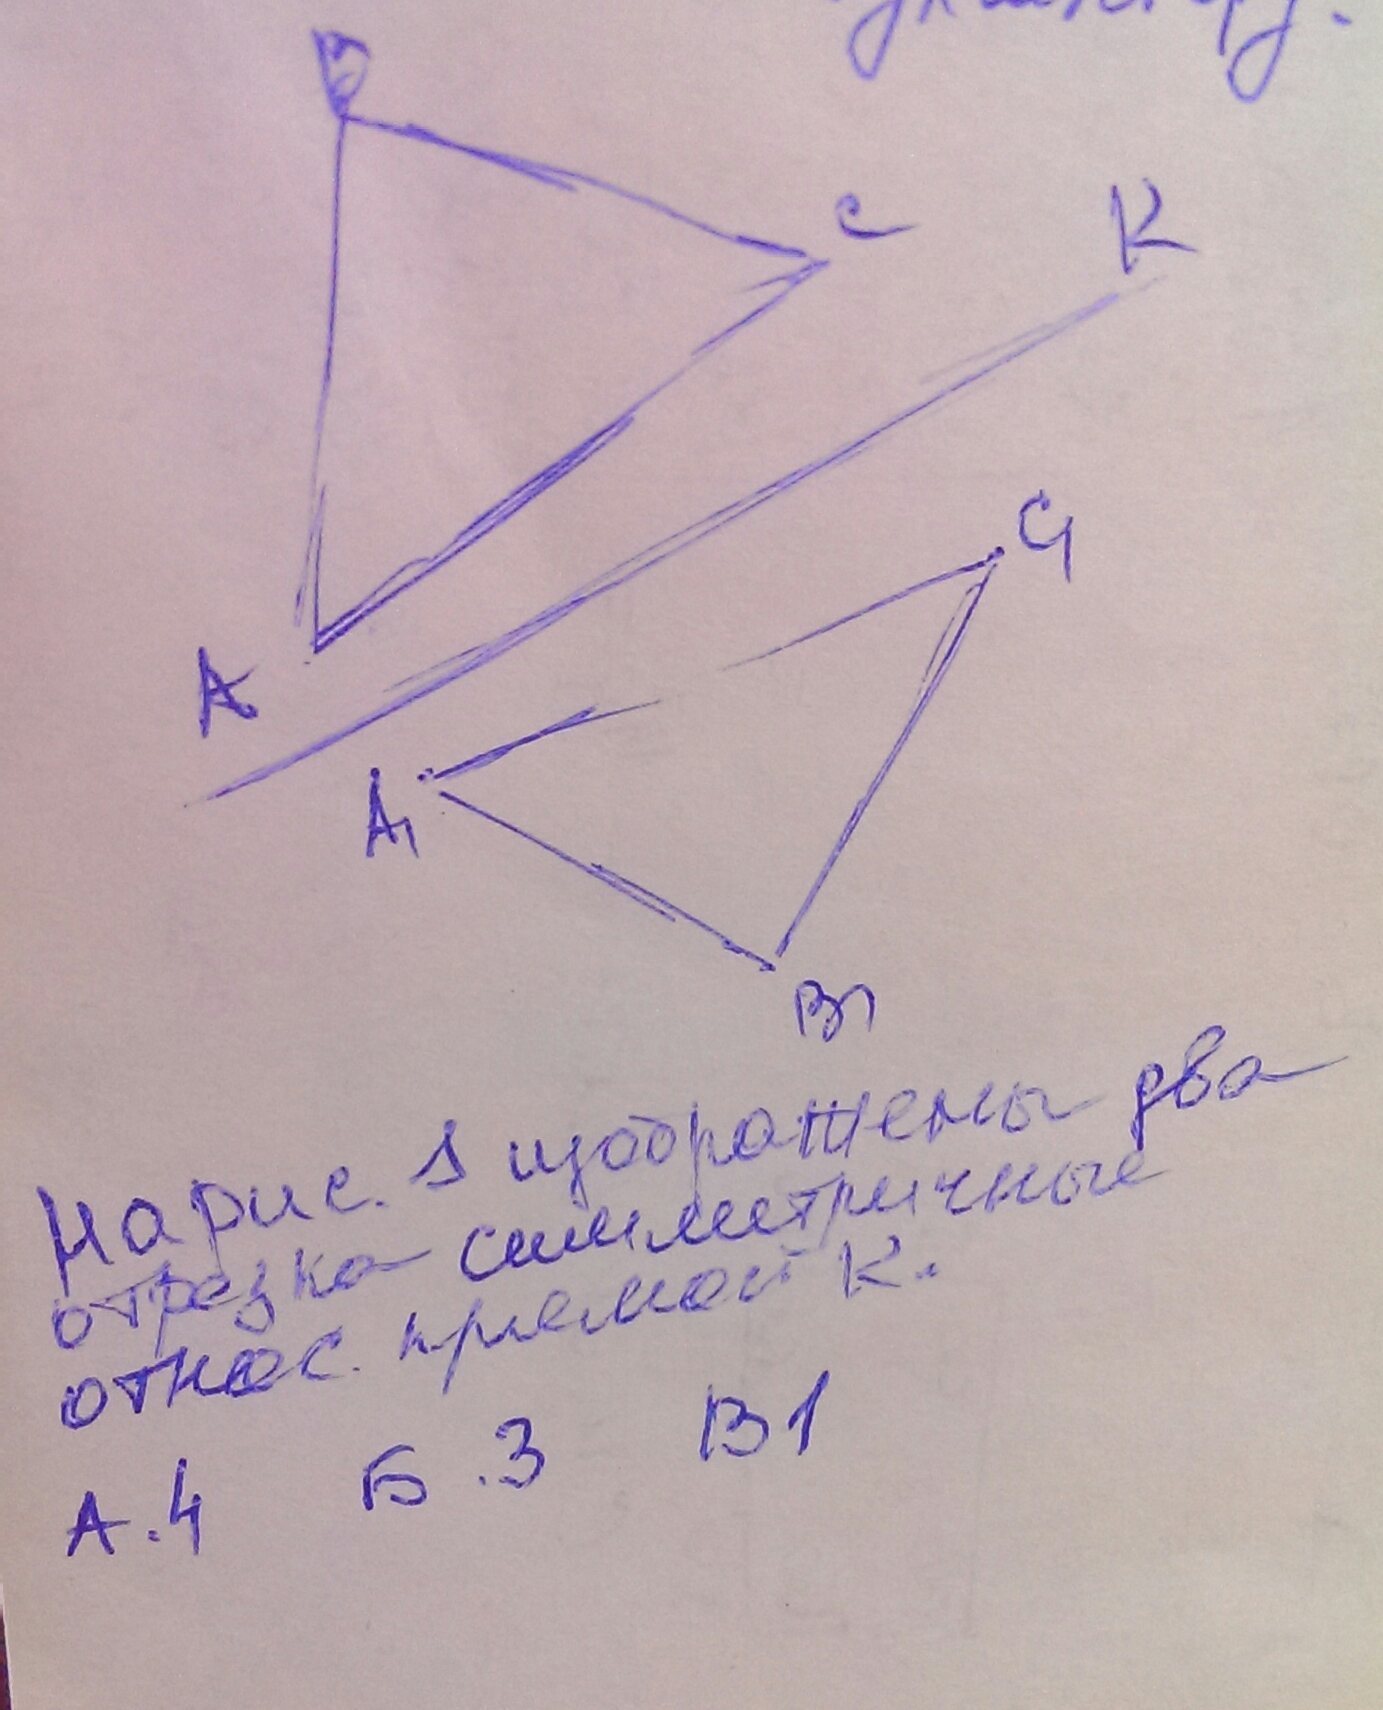 B
C
K
A
C1
A1
B1
На рис. 1 изображены два
отрезка симметричные
относ. прямой К.
А.4 Б.3 В1